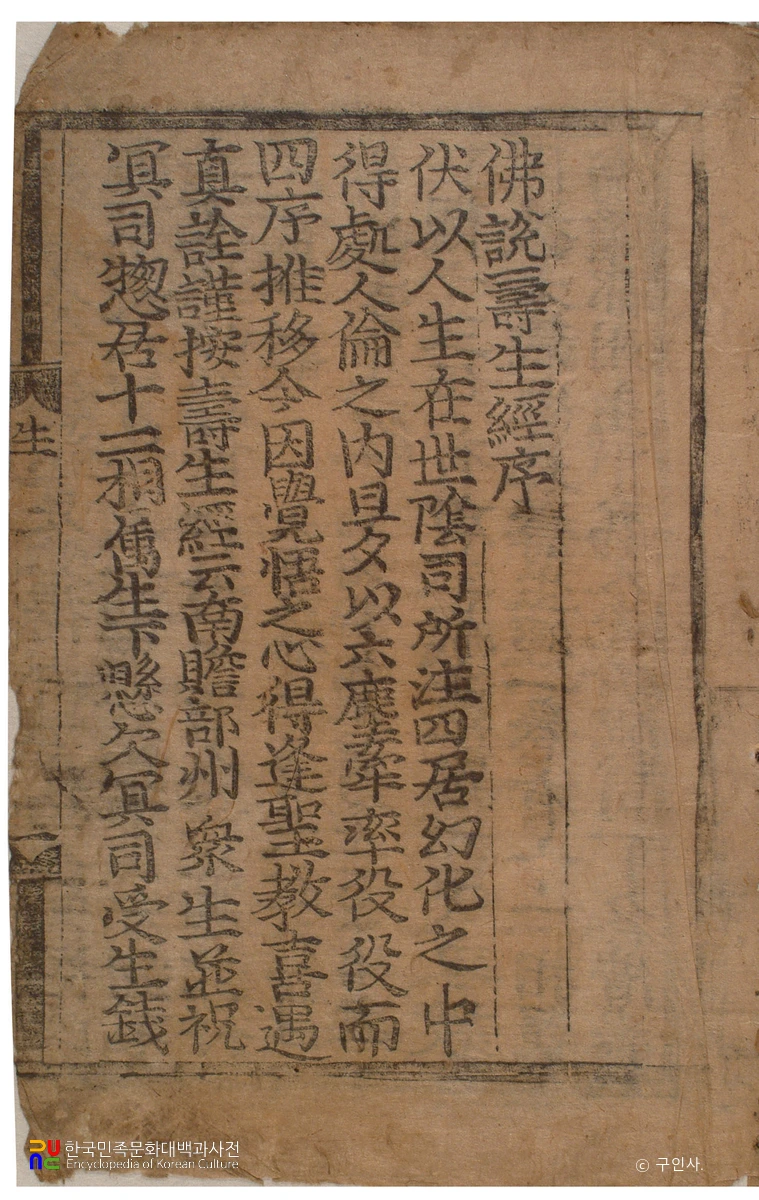 佛說壽生經序
伏以人生在世陰司所注四居幻化之中
得處人倫之內旦夕以六塵牽率役役而
四序推移今因覺悟之心得逢聖教喜遇
真詮謹按壽生經云南贍部州衆生並祝
冥司惣君十二相屬生下懸欠冥司受生錢
生
一
한국민족문화대백과사전
Encyclopedia of Korean Culture
© 구인사.